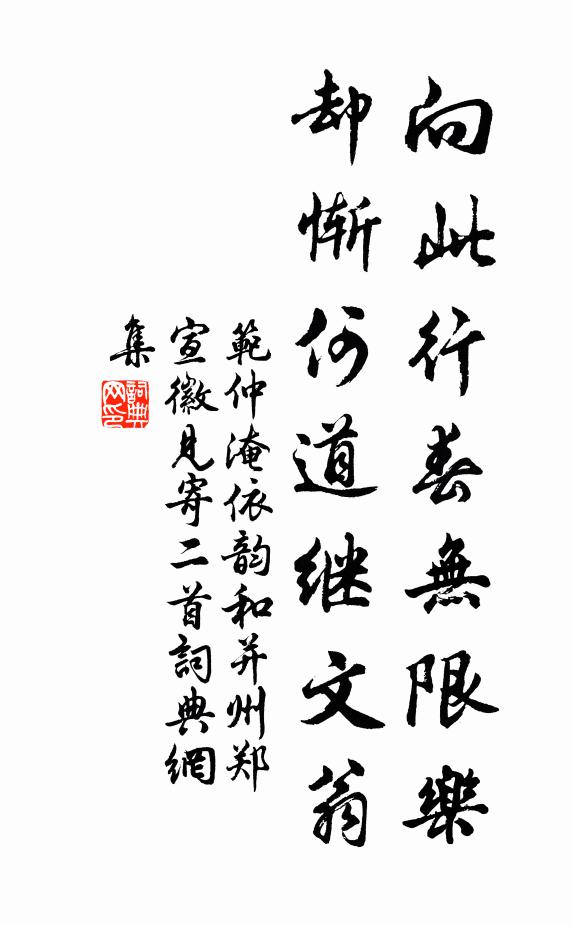 向此行春無限樂
却惭何道继文翁
範仲淹依韵和并州郑
宣徽見寄二首詞典網
集
詞典网印